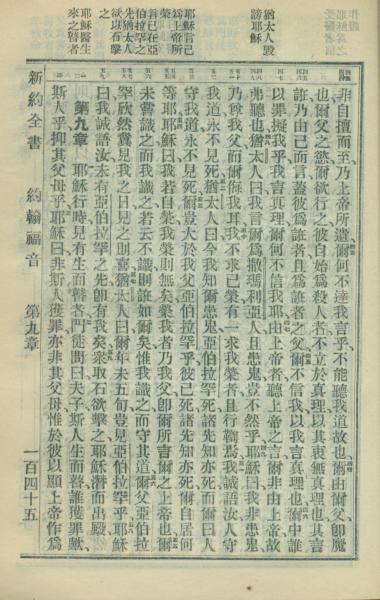 作魔
耶穌爲之
受醫者
猶太人毀
謗耶穌
耶穌言己
爲上帝所
榮
言已在亞
伯拉罕之
先猶太人
欲以石擊
之
耶穌醫生
來之瞽者
非自擅而至、乃上帝所遣、爾何不達我言乎、不能聽我道故也、爾由爾父卽魔
也、爾父之慾、爾欲行之、彼自始爲殺人者、不立於眞理、以其衷無眞理也、其言
誑乃由己而言、蓋彼爲誑者、且爲誑者之父、爾不信我、以我言眞理也、爾中誰
以罪擬我乎、我言眞理、爾何不信我耶、由上帝者、聽上帝之言、爾非由上帝、故
弗聽也、猶太人曰、我言爾爲撒瑪利亞人、且患鬼、豈不然乎、耶穌曰、我非患鬼
乃尊我父、而爾侮我耳、我不求己榮、有一求我榮者、且行鞫焉、我誠語汝、人守
我道、永不見死、猶太人曰、今我知爾患鬼、亞伯拉罕死、諸先知亦死、而爾曰、人
守我道、永不見死、爾豈大於我父亞伯拉罕乎、彼已死、諸先知亦死、爾自居何
等耶、耶穌曰、我若自榮、我榮則無矣、榮我者乃我父、卽爾所言爾之上帝也、爾
未嘗識之、而我識之、若云不識、則誑如爾矣、惟我識之、而守其道、爾父亞伯拉
罕欣然冀見我之日、見之則喜、猶太人曰、爾年未五旬、豈見亞伯拉罕乎、耶穌
曰、我誠語汝、未有亞伯拉罕之先、卽有我矣、衆取石欲擊之、耶穌潛而出殿、
第九章 耶穌行時、見有生而瞽者、門徒問曰、夫子、斯人生而瞽、誰獲罪歟、
斯人乎、抑其父母乎、耶穌曰、非斯人獲罪、亦非其父母、惟於彼以顯上帝作爲
新約全書 約翰福音 第九章 一百四十五